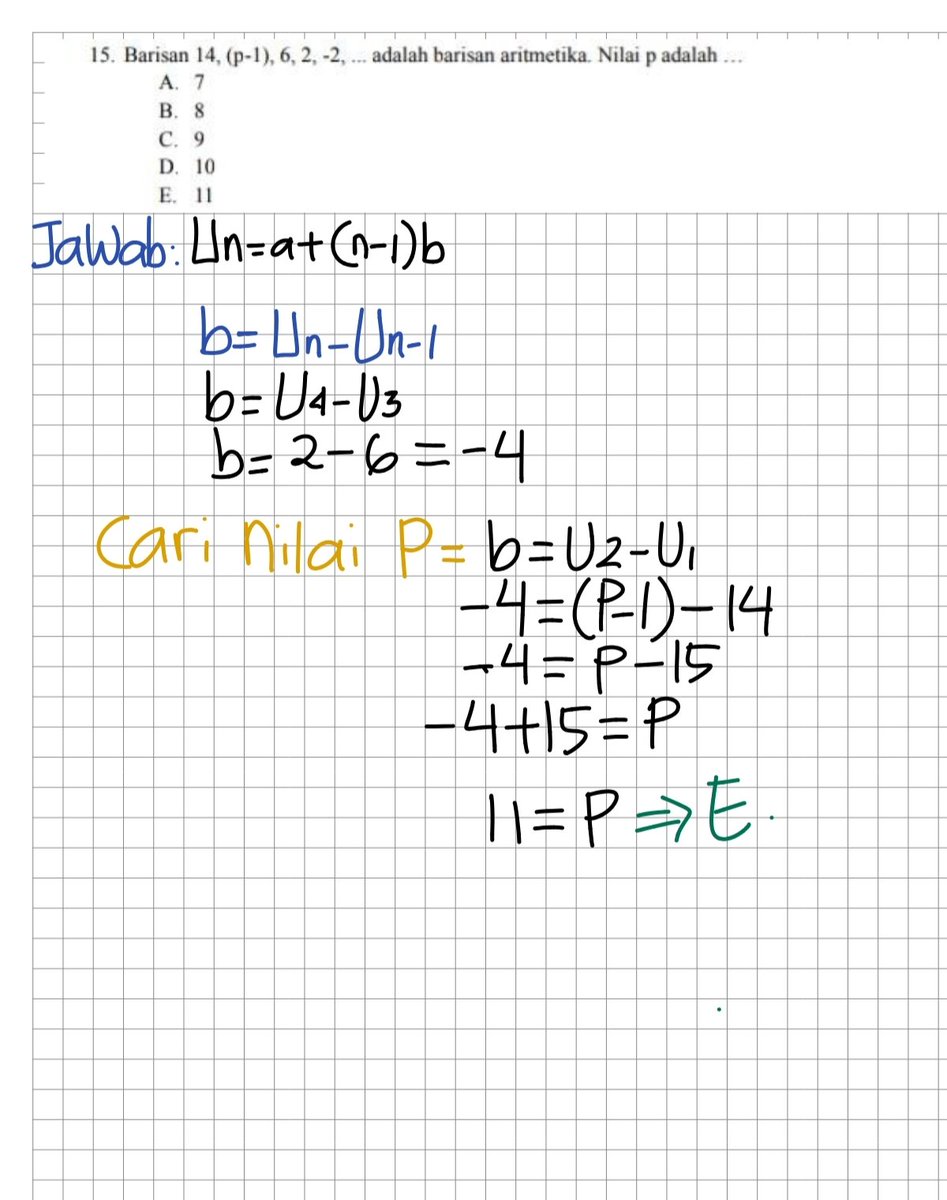 15. Barisan 14, (p-1), 6, 2, -2, ... adalah barisan aritmetika. Nilai p adalah …
A. 7
B. 8
C. 9
D. 10
E. 11
Jawab: Un=a+(n-1)b
b= Un-Un-1
b= U4-U3
b= 2-6 = -4
Cari Nilai P= b=U2-U1
-4=(P-1)-14
-4= P-15
-4+15=P
11=P ⇒ E.